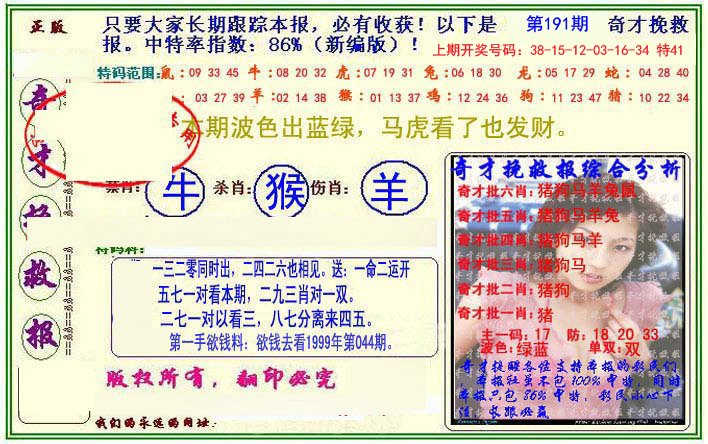 正版
只要大家长期跟踪本报，必有收获！以下是 第191期 奇才挽救
报。中特率指数：86%（新编版）！
上期开奖号码：38-15-12-03-16-34 特41
特码范围：鼠：09 33 45 牛：08 20 32 虎：07 19 31 兔：06 18 30 龙：05 17 29 蛇：04 28 40
：03 27 39 羊：02 14 38 猴：01 13 37 鸡：12 24 36 狗：11 23 47 猪：10 22 34
本期波色出蓝绿，马虎看了也发财。
奇
才
救
报
禁肖：牛 杀肖：猴 伤肖：羊
特码料：
一三二零同时出，二四二六也相见。送：一命二运开
五七一对看本期，二九三肖对一双。
二七一对以看三，八七分离来四五。
第一手欲钱料：欲钱去看1999年第044期。
版权所有，翻印必究
我们的永远的网址：
奇才挽救报综合分析
奇才批六肖：猪狗马羊兔鼠
奇才批五肖：猪狗马羊兔
奇才批四肖：猪狗马羊
奇才批三肖：猪狗马
奇才批二肖：猪狗
奇才批一肖：猪
主一码：17 防：18 20 33
波色：绿蓝 单双：双
奇才挽救各位支持本报的彩民们，
本报社虽不包100%中特，但时
本报只包86%中特，彩民小心下
注，长跟必赢